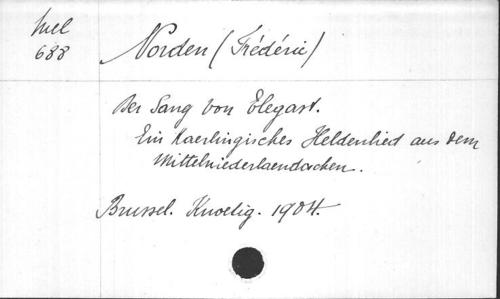 Mel
688
Norden (Frédéric)
Der Sang von Elegast.
Ein Kaerlingisches Heldenlied aus dem
Mittelniederlaendischen.
Brussel. Knoetig. 1904.